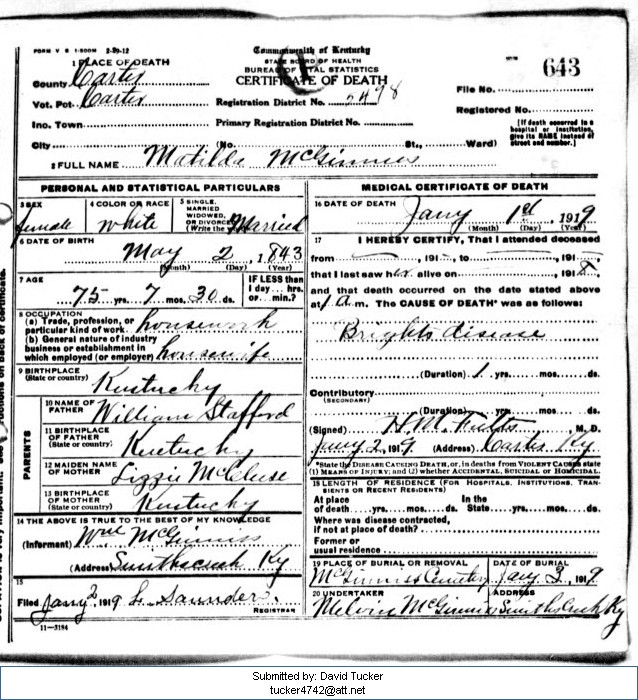 FORM V S 1-500M 2-29-12
Commonwealth of Kentucky
STATE BOARD OF HEALTH
BUREAU OF VITAL STATISTICS
CERTIFICATE OF DEATH
643
1 PLACE OF DEATH
County Carter
Vot. Pct. Carter
Inc. Town
City
Registration District No. 5498
Primary Registration District No.
(No. St., Ward)
File No.
Registered No.
[If death occurred in a hospital or institution, give its NAME instead of street and number.]
2 FULL NAME Matilda McGinniss
PERSONAL AND STATISTICAL PARTICULARS
3 SEX female
4 COLOR OR RACE white
5 SINGLE, MARRIED WIDOWED, OR DIVORCED (Write the word) Married
6 DATE OF BIRTH
May 2, 1843
(Month) (Day) (Year)
7 AGE
75 yrs. 7 mos. 30 ds.
IF LESS than 1 day... hrs. or... min.?
8 OCCUPATION
(a) Trade, profession, or particular kind of work housework
(b) General nature of industry business or establishment in which employed (or employer) housewife
9 BIRTHPLACE
(State or country) Kentucky
PARENTS
10 NAME OF FATHER William Stafford
11 BIRTHPLACE OF FATHER (State or country) Kentucky
12 MAIDEN NAME OF MOTHER Lizzie
13 BIRTHPLACE OF MOTHER (State or country) Kentucky
14 THE ABOVE IS TRUE TO THE BEST OF MY KNOWLEDGE
(Informant) Wm McGinniss
(Address) Ky
15
Filed Jany 2, 1919 L. Saunder. REGISTRAR
11-3184
MEDICAL CERTIFICATE OF DEATH
16 DATE OF DEATH
Jany 1st, 1919
(Month) (Day) (Year)
17 I HEREBY CERTIFY, That I attended deceased
from , 191 , to , 191 ,
that I last saw her alive on , 1918
and that death occurred on the date stated above
at 1 a m. The CAUSE OF DEATH* was as follows:
Brights disease
(Duration) 1 yrs. mos. ds.
Contributory
(SECONDARY)
(Duration) yrs. mos. ds.
(Signed) H.M. , M. D.
Jany 2, 1919 (Address) Carter Ky
*State the DISEASE CAUSING DEATH, or, in deaths from VIOLENT CAUSES state (1) MEANS OF INJURY; and (2) whether ACCIDENTAL, SUICIDAL OR HOMICIDAL.
18 LENGTH OF RESIDENCE (FOR HOSPITALS, INSTITUTIONS, TRANSIENTS OR RECENT RESIDENTS)
At place of death yrs. mos. ds. In the State yrs. mos. ds.
Where was disease contracted, if not at place of death?
Former or usual residence
19 PLACE OF BURIAL OR REMOVAL
McGinniss Cemetery
DATE OF BURIAL
Jany 3, 1919
20 UNDERTAKER
Melvin McGinniss
ADDRESS
Smiths Creek Ky
Submitted by: David Tucker
tucker4742@att.net